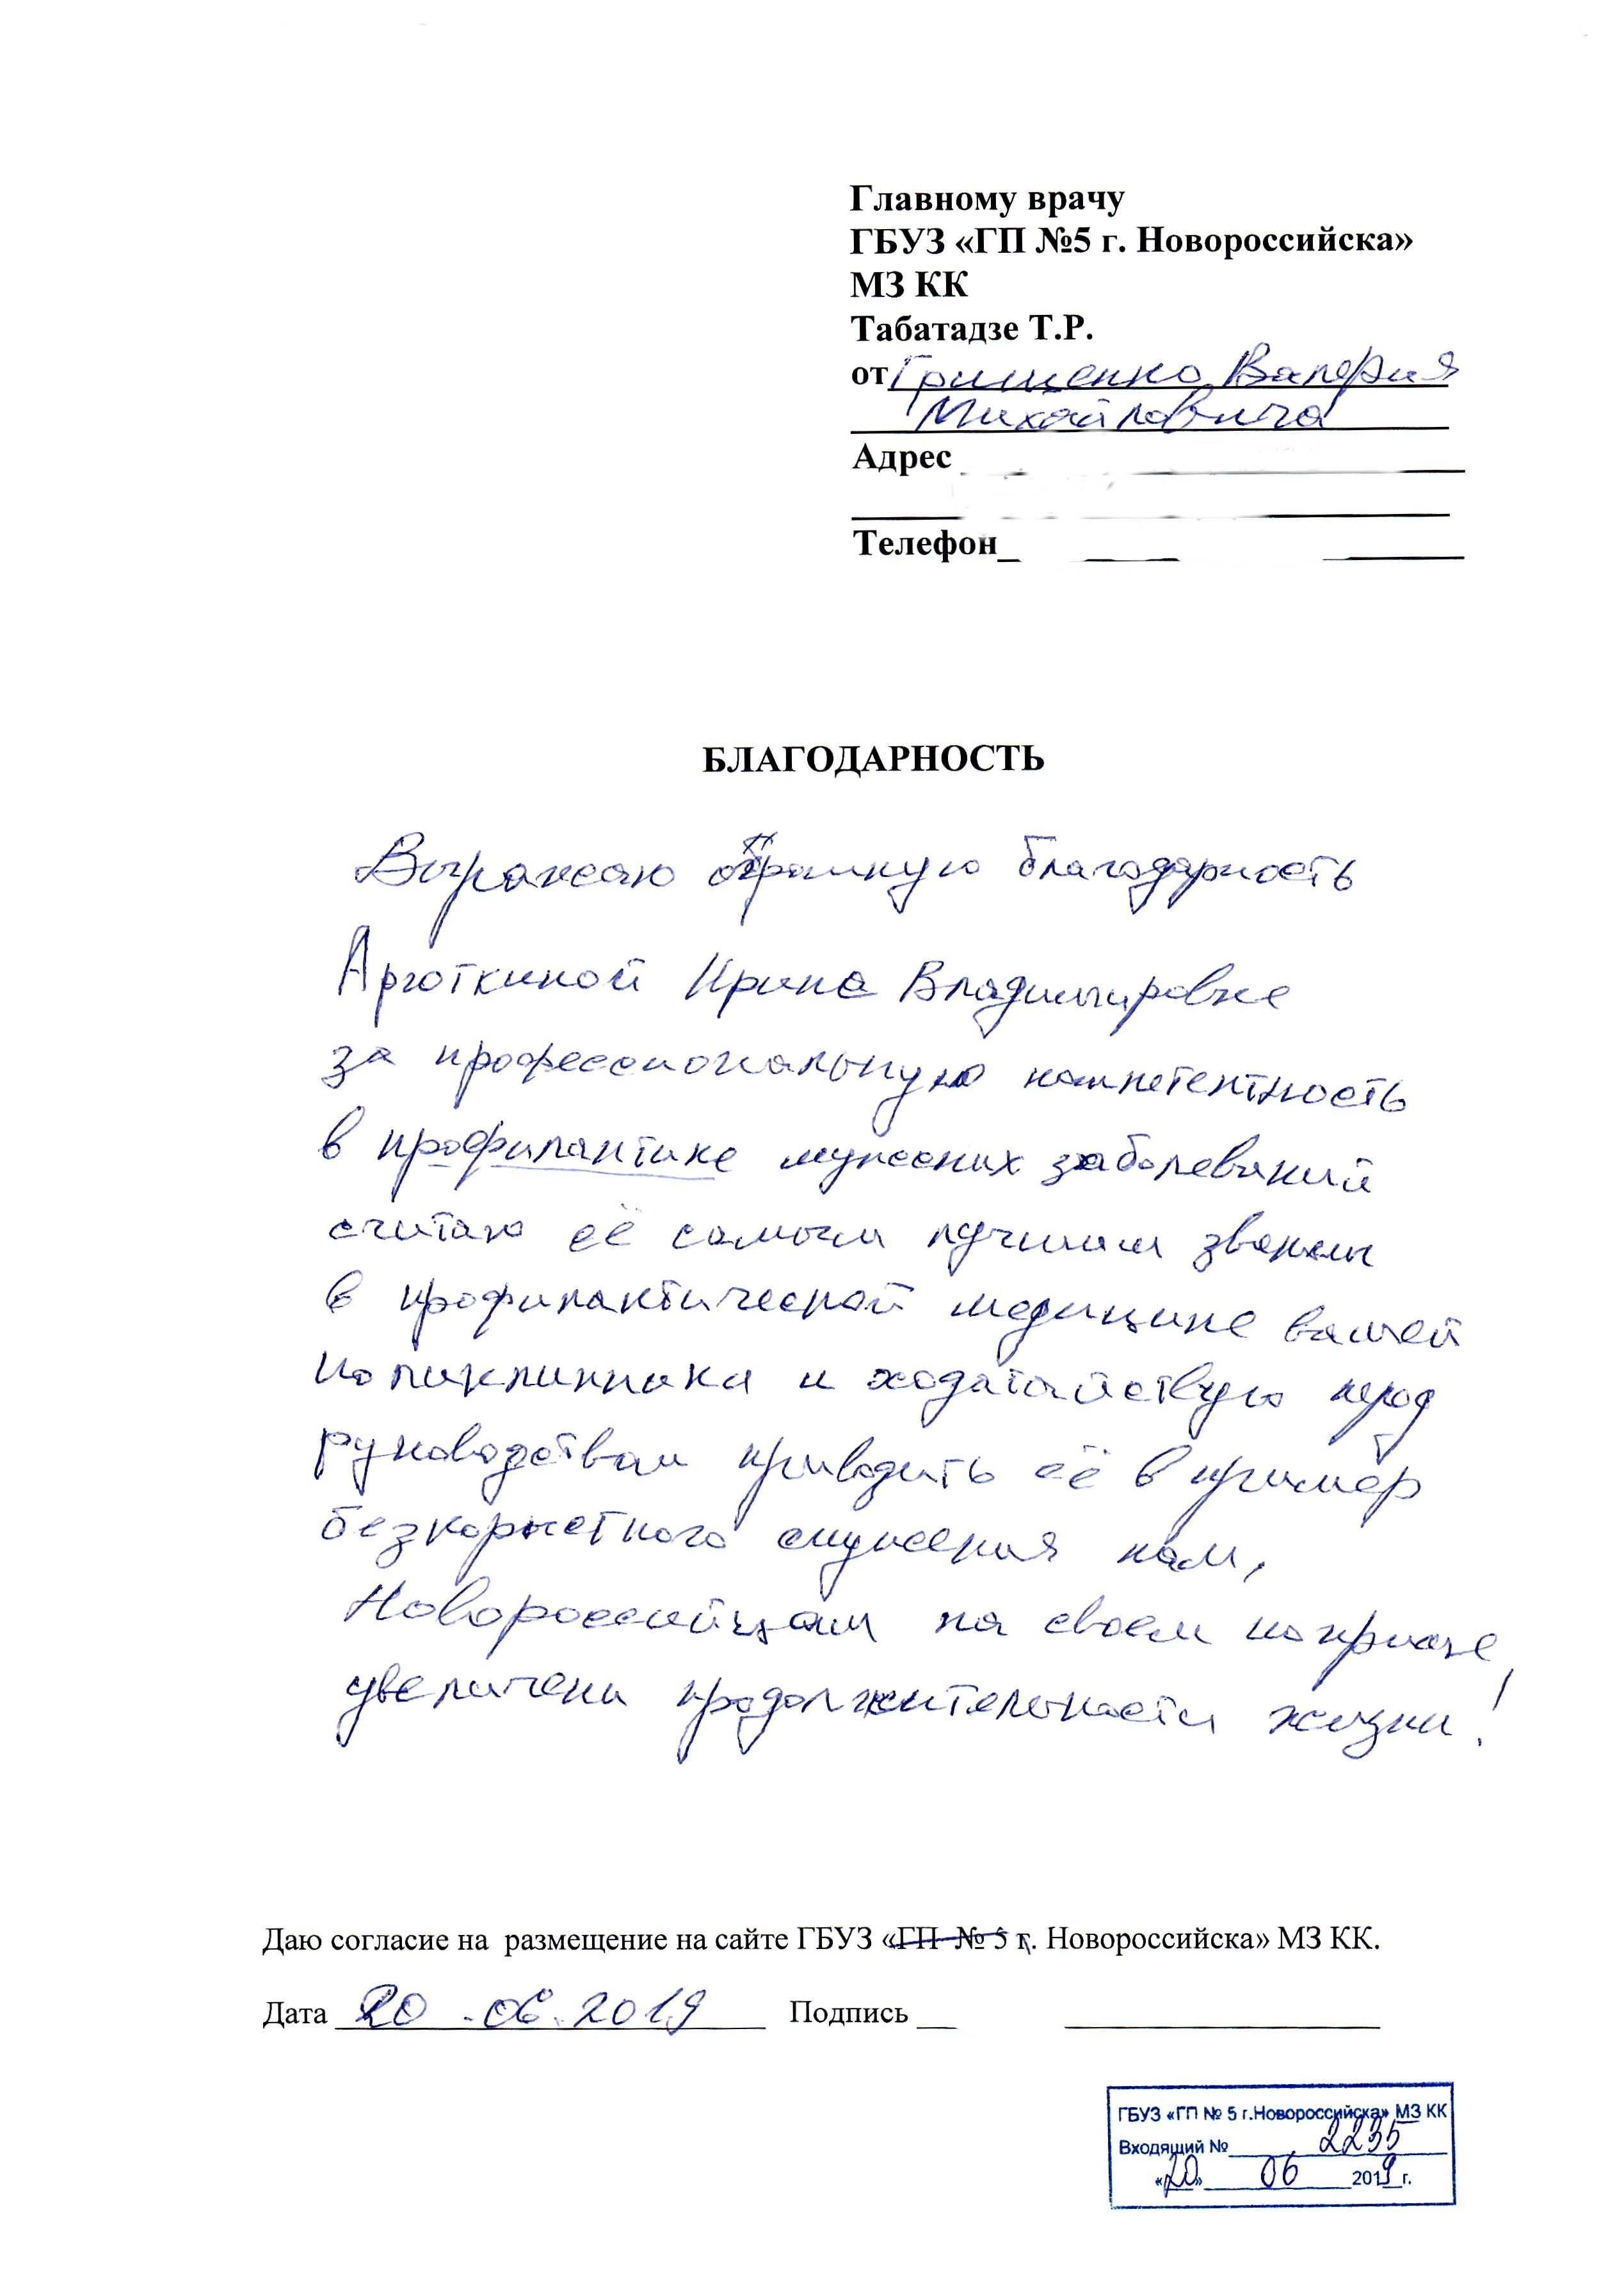 Главному врачу
ГБУЗ «ГП №5 г. Новороссийска»
МЗ КК
Табатадзе Т.Р.
от Грищенко Валерия
Михайловича
Адрес
Телефон
БЛАГОДАРНОСТЬ
Выражаю огромную благодарность
Ирине Владимировне
за профессиональную компетентность
в профилактике мужских заболеваний
считаю её самым лучшим звеном
в профилактической медицине вашей
поликлиники и ходатайствую перед
руководством приводить её в пример
безкорыстного служения нам,
Новороссийцам на своем поприще,
увеличени продолжительности жизни!
Даю согласие на размещение на сайте ГБУЗ «ГП № 5 г. Новороссийска» МЗ КК.
Дата 20.06.2019 Подпись
ГБУЗ «ГП № 5 г.Новороссийска» МЗ КК
Входящий № 2235
«20» 06 2019 г.